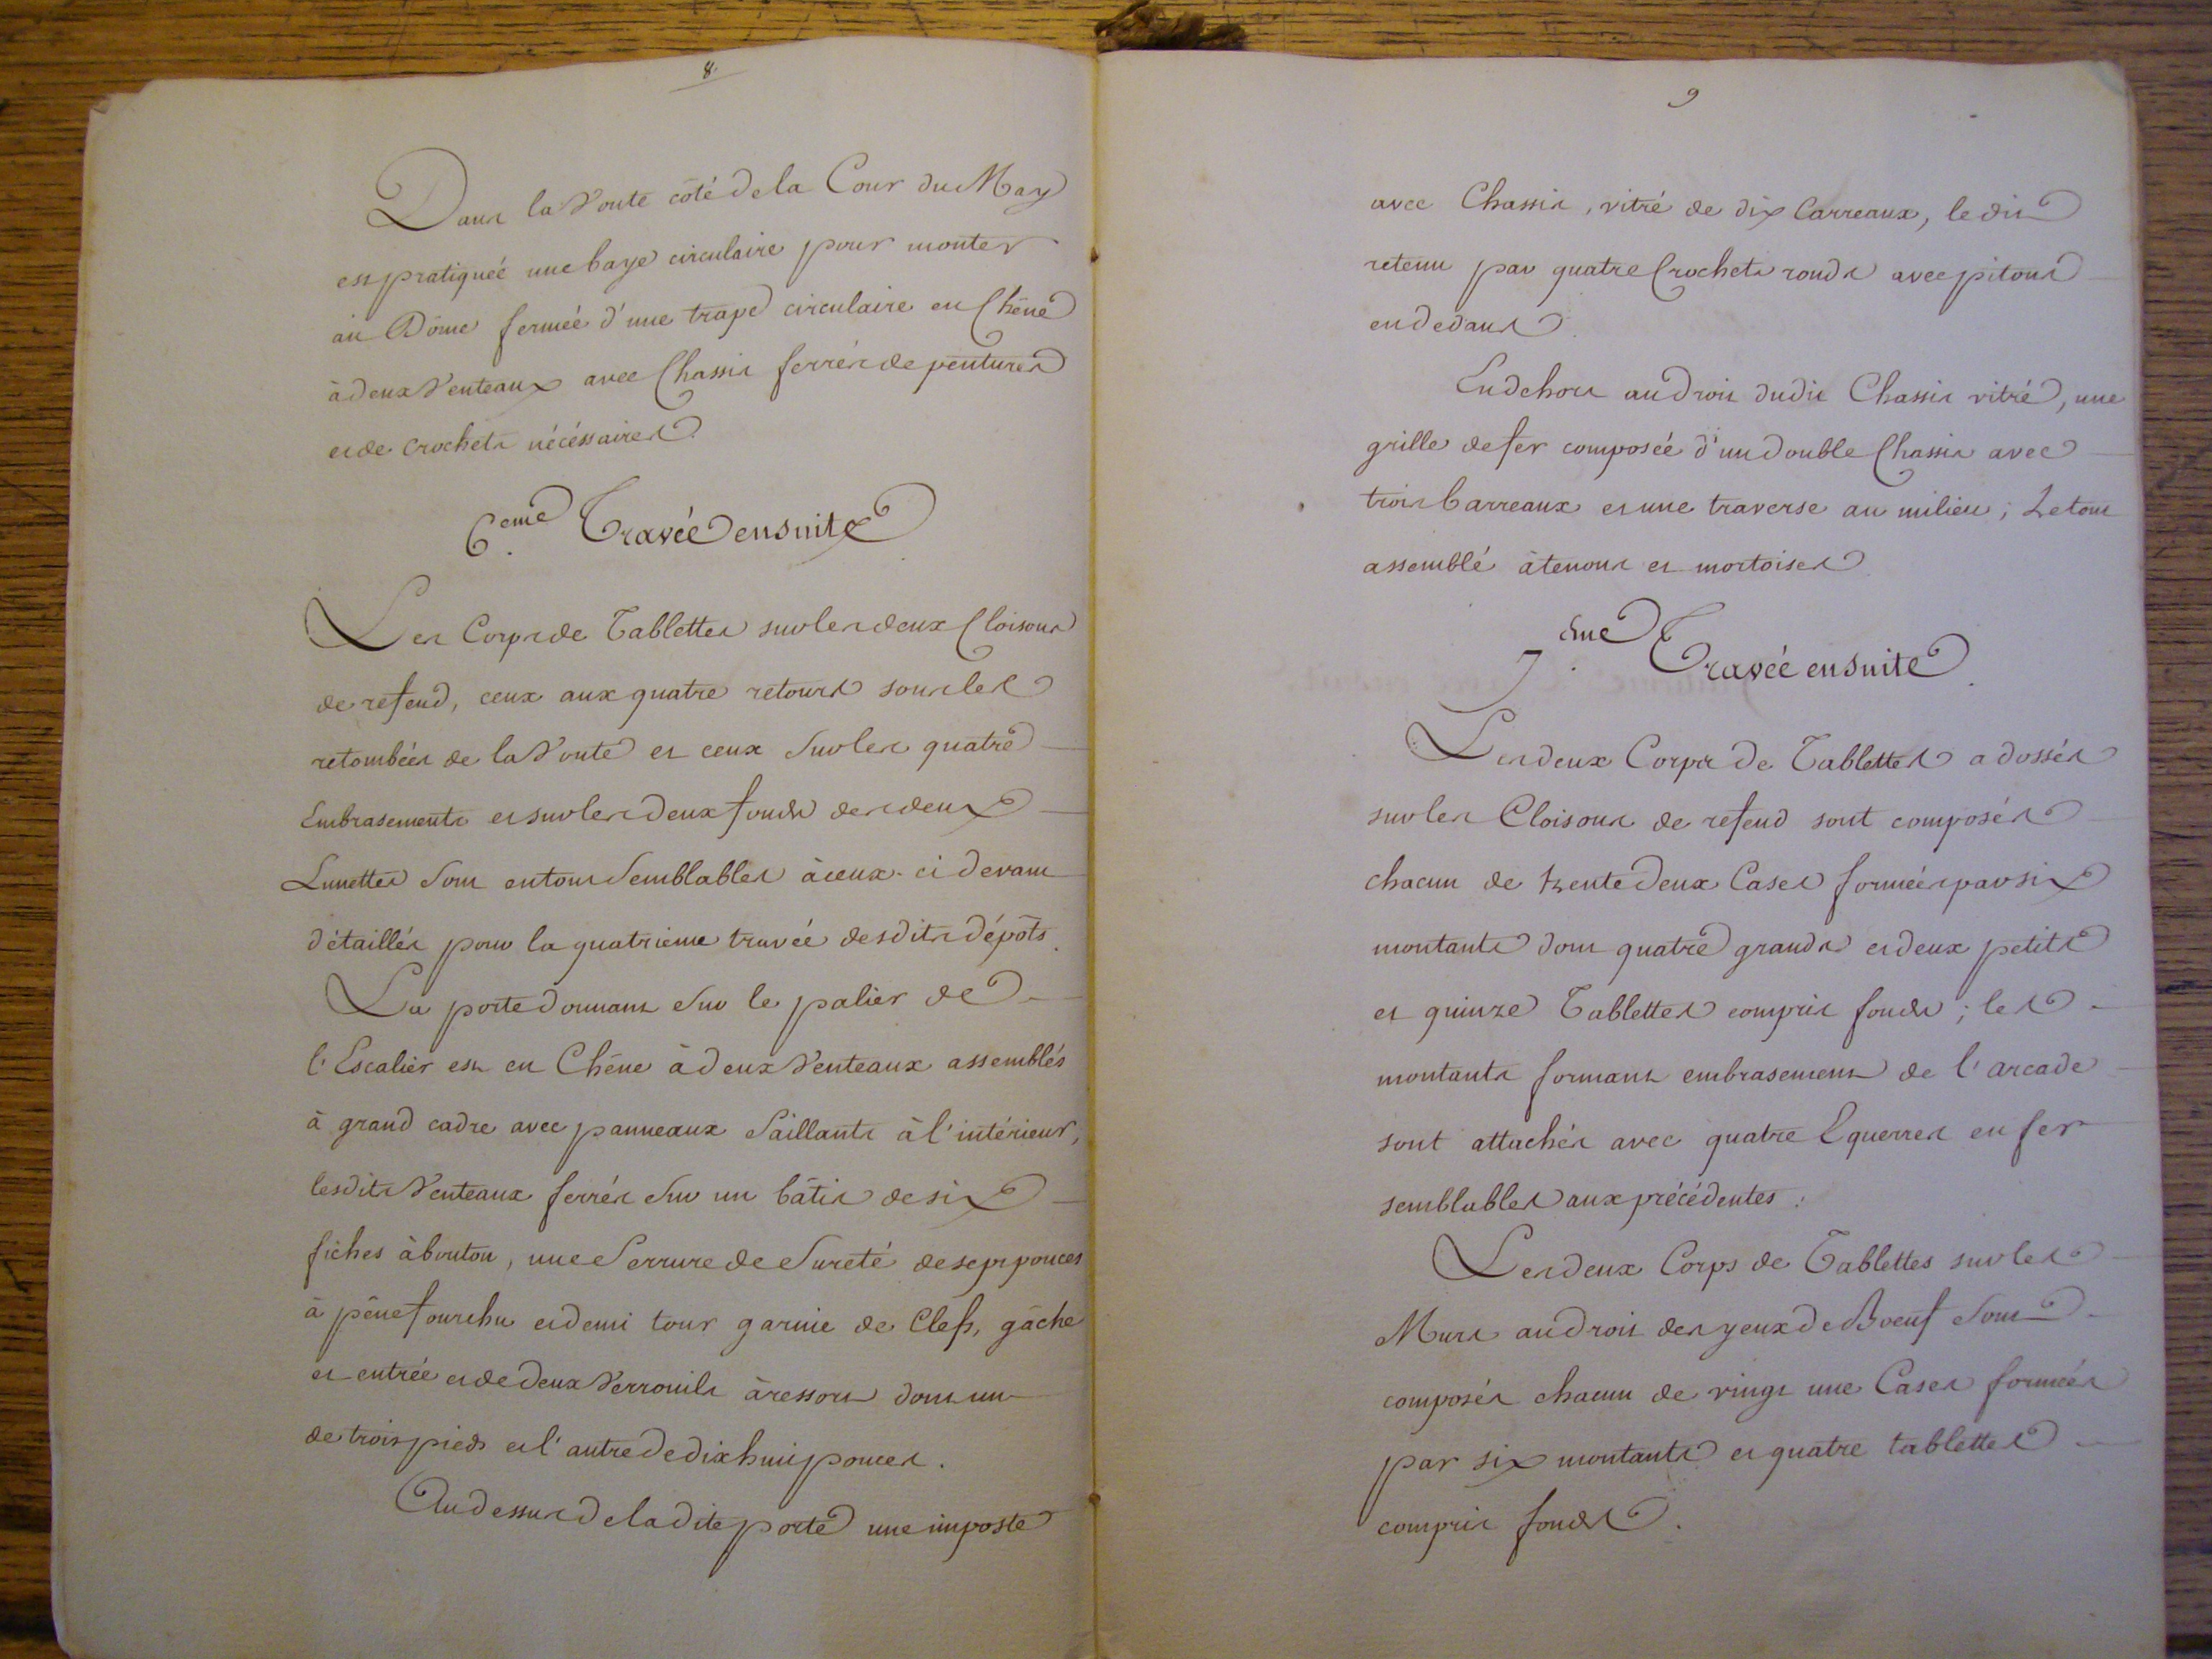 8.
Dans la Voute côté de la Cour du May
est pratiqueé une baye circulaire pour monter
au Dôme fermeé d'une trape circulaire en Chêne
à deux Venteaux avec Chassis ferrés de pentures
et de crochets nécéssaires.
6.eme Travée ensuite
Les Corps de Tablettes sur les deux Cloisons
de refend, ceux aux quatre retours sous les
retombées de la Voute et ceux Sur les quatre
Embrasements et sur les deux fonds des deux
Lunettes Sont en tout Semblables à ceux-ci devant
détaillés pour la quatrieme travée desdits dépôts.
La porte donnant Sur le palier de
l'Escalier est en Chêne à deux Venteaux assemblés
à grand cadre avec panneaux Saillants à l'intérieur,
lesdits Venteaux ferrés Sur un bâtis de six
fiches à bouton, une Serrure de Sureté de sept pouces
à pêne fourchu et demi tour garnie de Clefs, gâche
et entrée et de deux Verrouils à ressort dont un
de trois pieds et l'autre de dix huit pouces.
Au dessus de ladite porte une imposte
9
avec Chassis, vitré de dix Carreaux, le dit
retenu par quatre Crochets ronds avec pitons
en dedans.
En dehors au droit dudit Chassis vitré, une
grille de fer composée d'un double Chassis avec
trois barreaux et une traverse au milieu; Le tout
assemblé à tenons et mortoises
7.eme Travée ensuite.
Les deux Corps de Tablettes adossés
sur les Cloisons de refend sont composés
chacun de trente deux Cases formées par six
montants dont quatre grands et deux petits
et quinze Tablettes compris fonds; les
montants formant embrasement de l'arcade
sont attachés avec quatre Equerres en fer
semblables aux précédentes.
Les deux Corps de Tablettes sur les
Murs au droit des yeux de Boeuf Sont
composés chacun de vingt une Cases formées
par six montants et quatre tablettes
compris fonds.